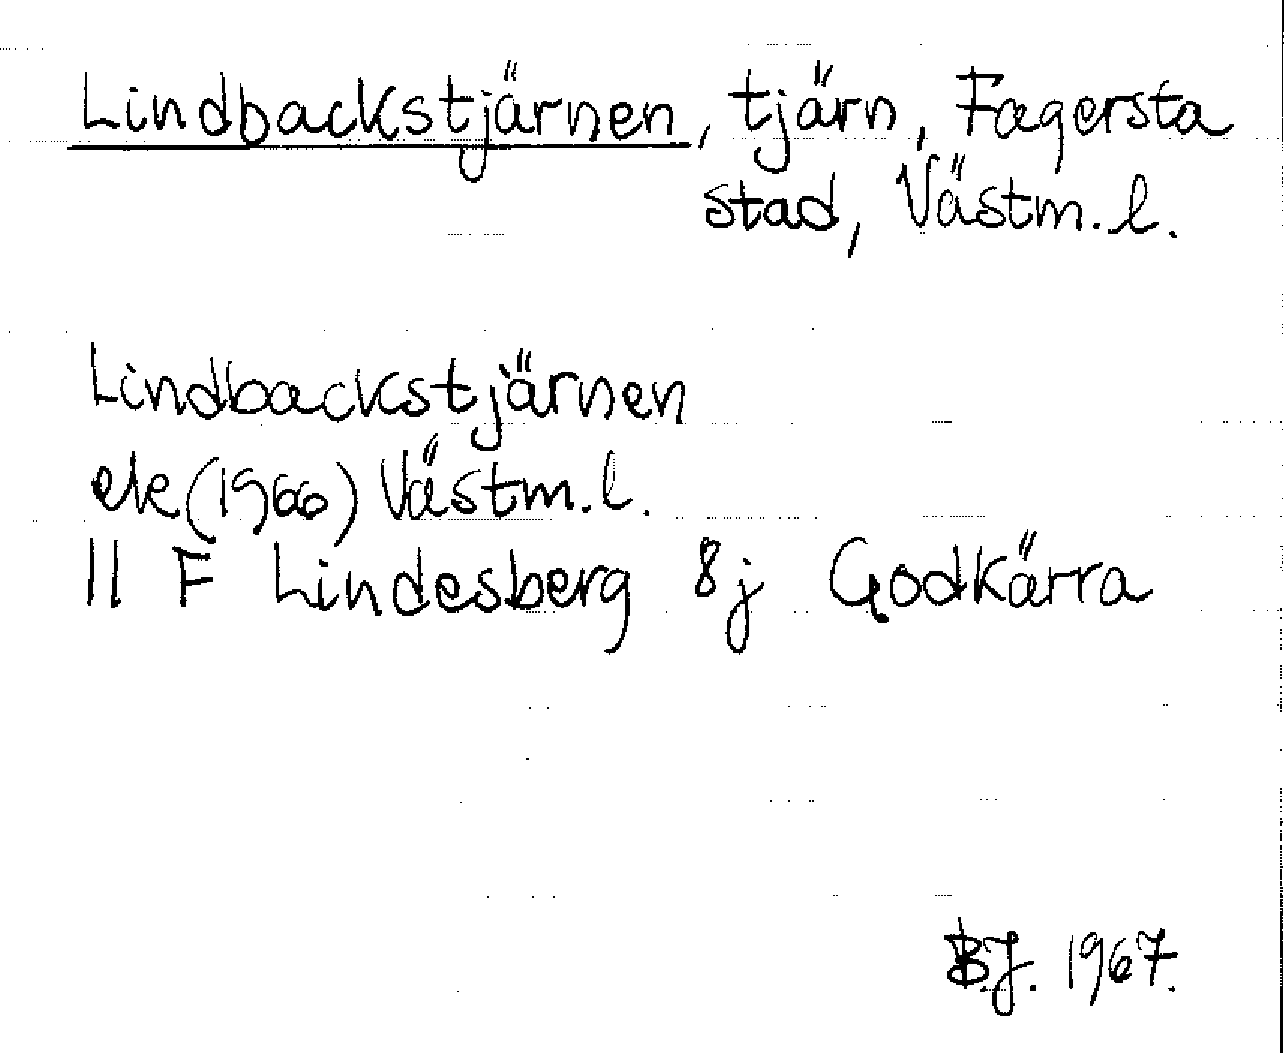 Lindbackstjärnen, tjärn, Fagersta
stad, Västm. l.
Lindbackstjärnen
ek (1966) Västm. l.
11 F Lindesberg 8j Godkärra
B.J. 1967.